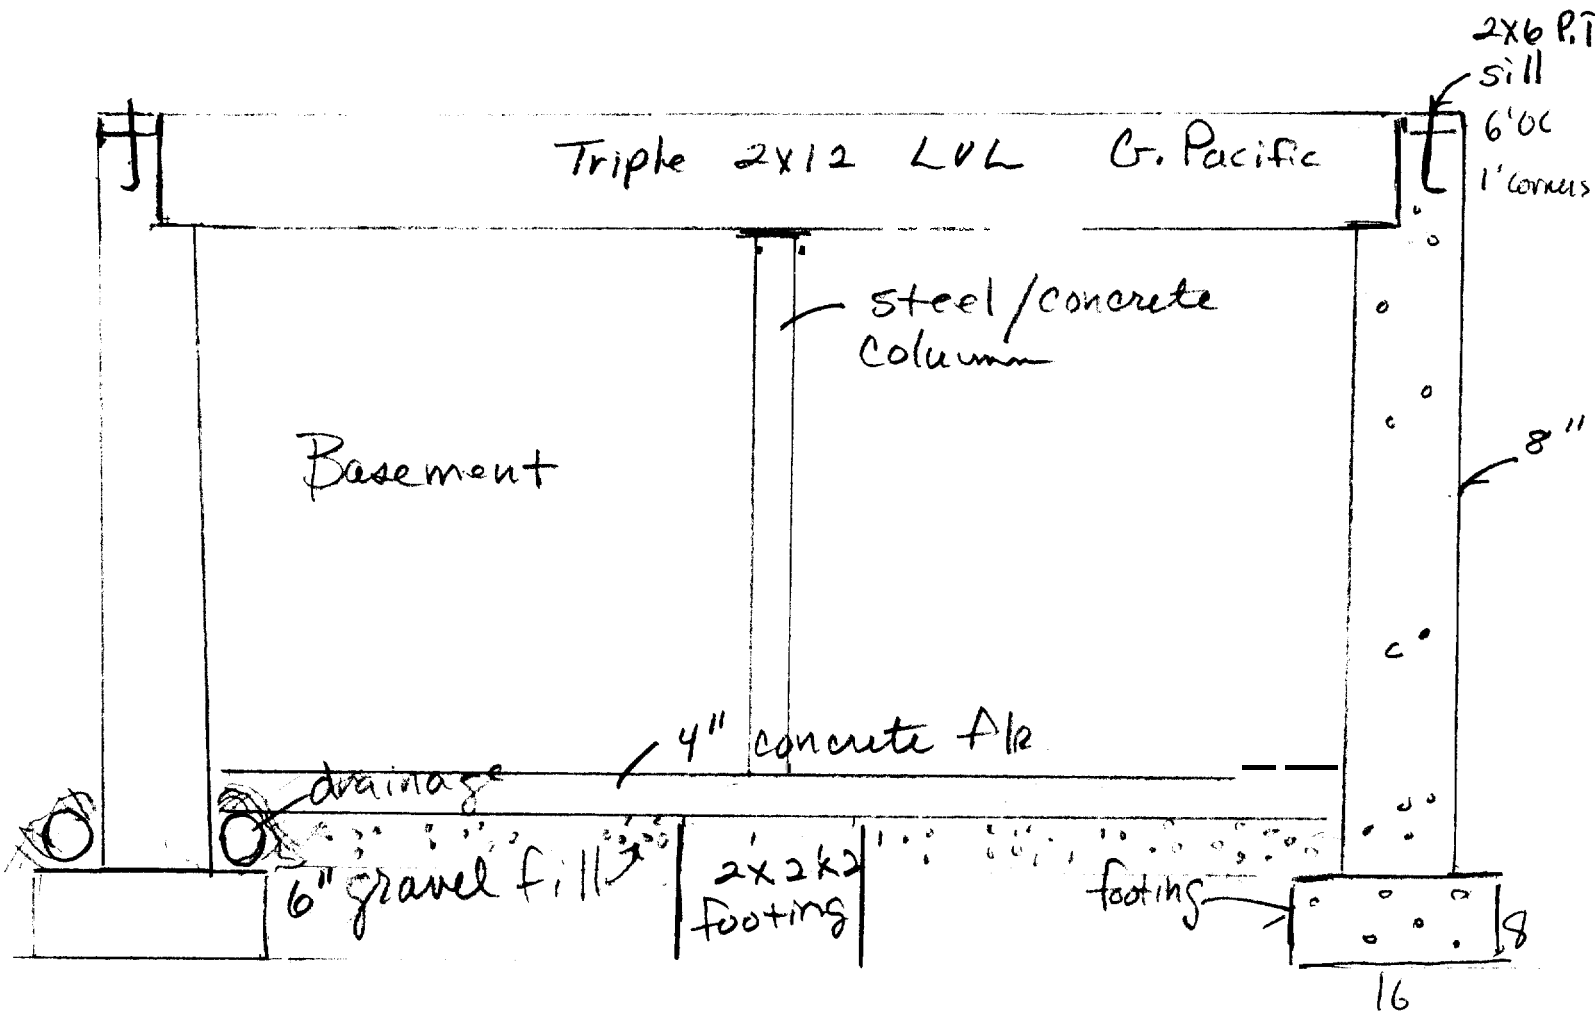 2x6 P.T
sill
6'OC
1' corners
Triple 2x12 LVL G. Pacific
steel/concrete
column
Basement
8"
4" concrete flr
drainage
6" gravel fill
2'x2'x2
footing
footing
8
16